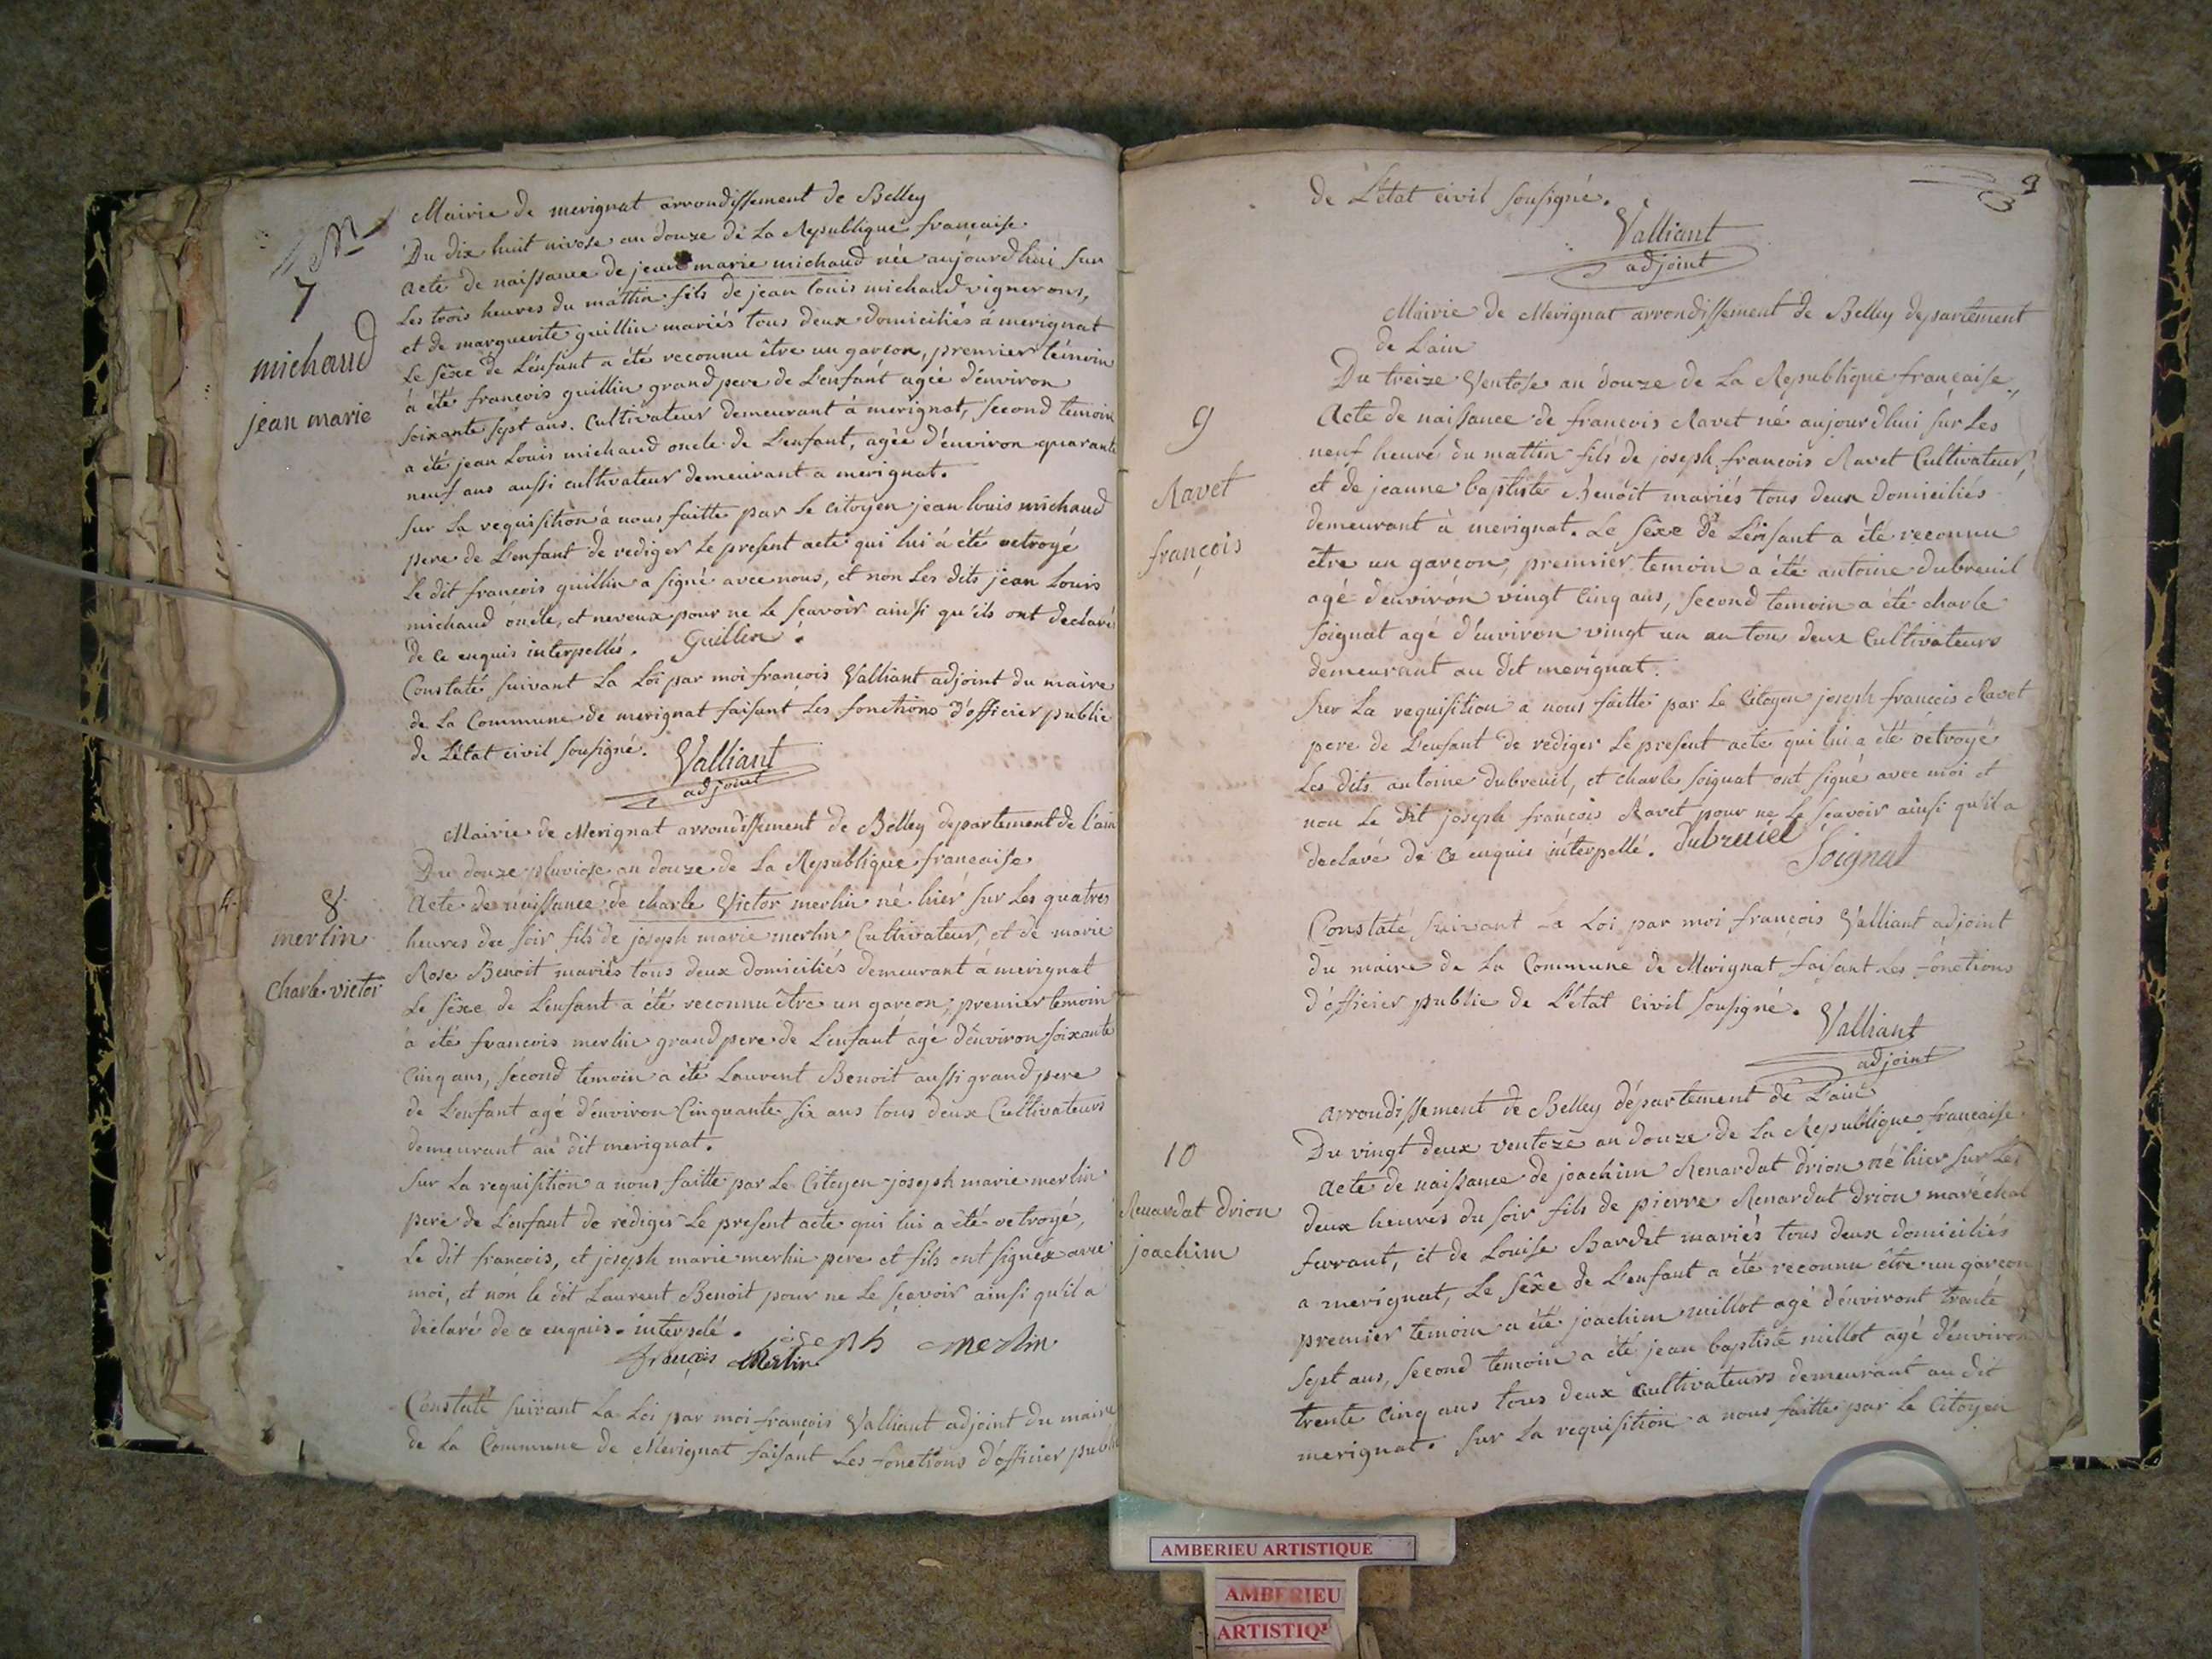 N
7
michaud
jean marie
Mairie de merignat arrondissement de Belley
Du dix huit nivose an douze de La Republique francaise
acte de naissance de jean marie michaud née aujourdhui sur
Les trois heures du mattin fils de jean louis michaud vignerons,
et de marguerite guillin mariés tous deux domiciliés a merignat
Le sêxe de L'enfant a été reconnu être un garcon, premier témoin
a été francois guillin grand pere de L'enfant agée d'environ
soixante sept ans. Cultivateur demeurant a merignat, second temoin
a été jean Louis michaud oncle de L'enfant, agée d'environ quarante
neuf ans aussi cultivateur demeurant a merignat.
sur La requisition à nous faitte par Le citoyen jean louis michaud
pere de L'enfant de rediger Le present acte qui lui a été octroyé
Le dit françois guillin a signé avec nous, et non Les dits jean Louis
michaud oncle, et neveux pour ne Le scavoir ainsi qu'ils ont declaré
de ce enquis interpellés. Guillin
Constaté suivant La Loi par moi francois Valliant adjoint du maire
de La Commune de merignat faisant Les fonctions d'officier public
de L'état civil sousigné. Valliant
adjoint
8
merlin
Charle victor
Mairie de Merignat arrondissement de Belley departement de l'ain
Du douze pluviose an douze de La Republique francaise
Acte de naissance de charle Victor merlin né hier sur Les quatres
heures du soir fils de joseph marie merlin Cultivateur, et de marie
Rose Benoit mariés tous deux domiciliés demeurant à merignat
Le sêxe de L'enfant a été reconnu être un garcon, premier temoin
à été francois merlin grand pere de L'enfant agé d'environ soixante
Cinq ans, second temoin a été Laurent Benoit aussi grand pere
de L'enfant agé d'environ Cinquante six ans tous deux Cultivateurs
demeurant au dit merignat.
sur La requisition a nous faitte par Le Citoyen joseph marie merlin
pere de L'enfant de rediger Le present acte qui lui a été octroyé,
Le dit francois, et joseph marie merlin pere et fils ont signes avec
moi, et non le dit Laurent Benoit pour ne Le scavoir ainsi qu'il a
declaré de ce enquis interpelé.
joseph merlin
françois Merlin
Constaté suivant La Loi par moi françois Valliant adjoint du maire
de La Commune de Merignat faisant Les fonctions d'officier public
9
de L'état civil sousigné.
Valliant
adjoint
9
Ravet
françois
Mairie de Merignat arrondissement de Belley departement
de L'ain
Du treize Ventose an douze de La Republique francaise,
Acte de naissance de francois Ravet né aujourdhui sur Les
neuf heure du mattin fils de joseph francois Ravet Cultivateur,
et de jeanne baptiste Benoit mariés tous deux domiciliés
demeurant à merignat. Le sêxe de L'enfant a été reconnu
être un garcon, premier temoin a été antoine dubreuil
agé d'environ vingt Cinq ans, second temoin a été charle
soignat agé d'environ vingt un an tous deux Cultivateurs
demeurant au dit merignat.
sur La requisition a nous faitte par Le Citoyen joseph francois Ravet
pere de L'enfant de rediger Le present acte qui lui a été octroyé
Les dits antoine dubreuil, et charle soignat ont signé avec moi et
non Le dit joseph francois Ravet pour ne Le scavoir ainsi qu'il a
declaré de ce enquis interpellé. dubreuiel Soignat
Constaté suivant La Loi par moi françois Valliant adjoint
du maire de La Commune de Merignat faisant Les fonctions
d'officier public de L'état Civil sousigné. Valliant
adjoint
10
Renardat Drion
joachim
arrondissement de Belley département de L'ain
Du vingt deux ventoze an douze de La Republique francaise
Acte de naissance de joachim Renardat drion né hier sur Les
deux heures du soir fils de pierre Renardat drion maréchal
ferrant, et de Louise Bardet mariés tous deux domiciliés
a merignat, Le sêxe de L'enfant a été reconnu être un garcon
premier temoin a été joachim millot agé d'environt trente
sept ans, second temoin a été jean baptiste millot agé d'environ
trente Cinq ans tous deux Cultivateurs demeurant au dit
merignat. sur La requisition a nous faitte par Le Citoyen
AMBERIEU ARTISTIQUE
AMBERIEU
ARTISTIQ